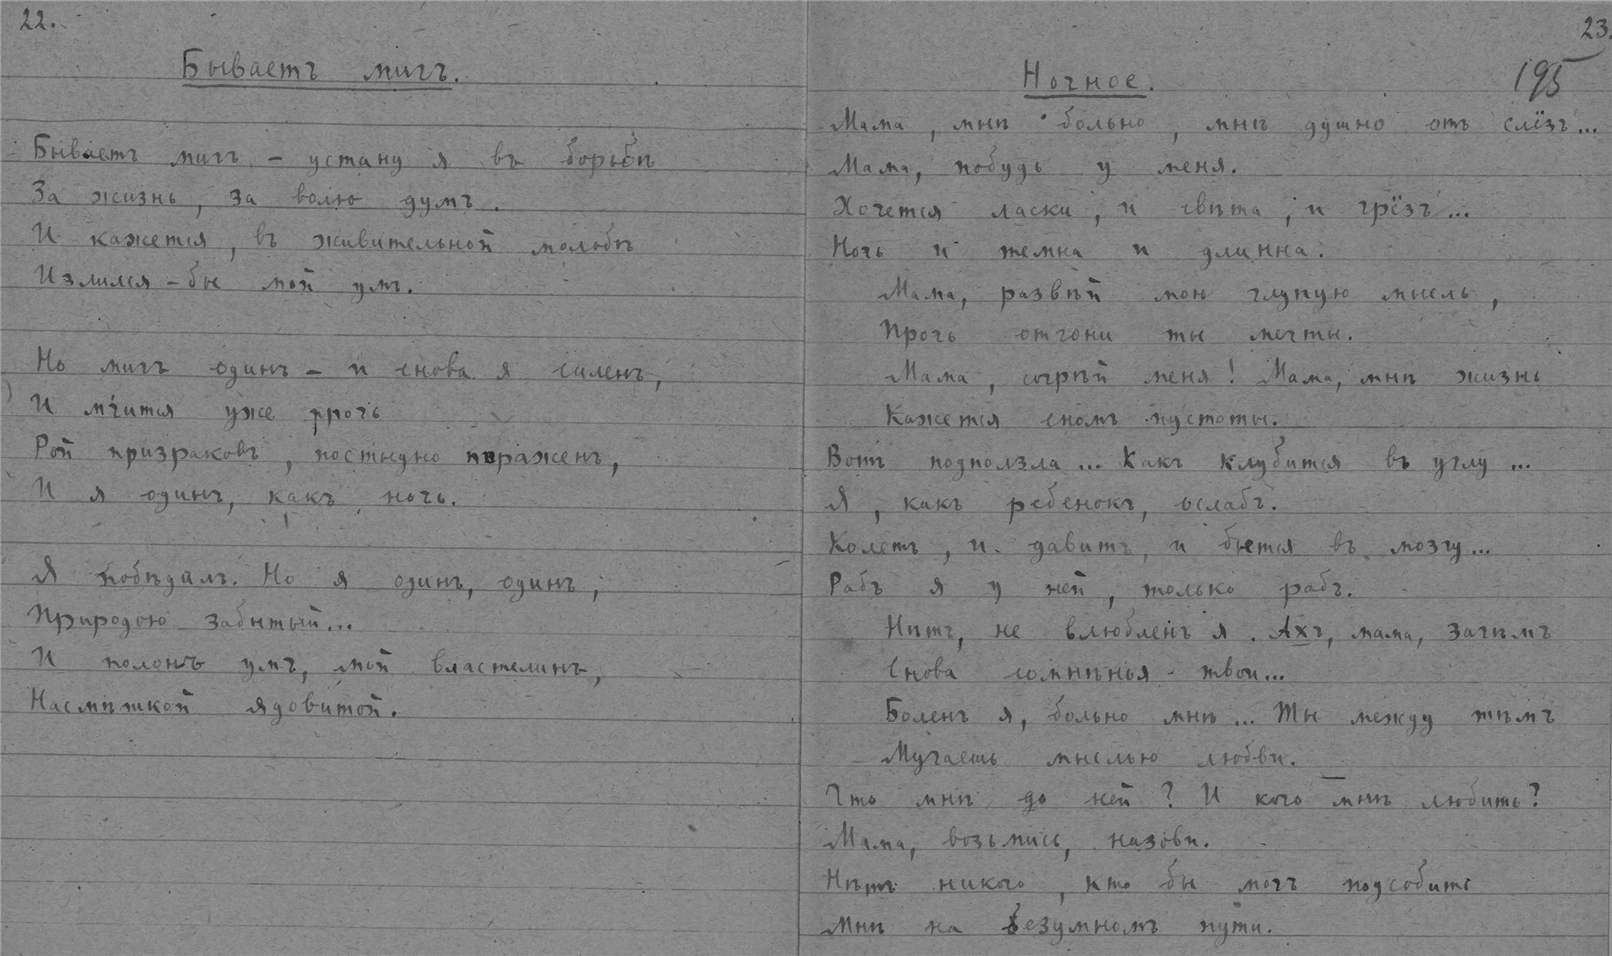 22.
Бываетъ мигъ.
Бываетъ мигъ – устану я въ борьбѣ
За жизнь, за волю думъ.
И кажется, въ живительной мольбѣ
Излился–бы мой умъ.
Но мигъ одинъ – и снова я силенъ,
И мчится уже прочь
Рой призраковъ, постыдно пораженъ,
И я одинъ, какъ ночь.
Я побѣдилъ. Но я одинъ, одинъ,
Природою забытый...
И полонъ умъ, мой властелинъ,
Насмѣшкой ядовитой.
23.
195
Ночное.
Мама, мнѣ больно, мнѣ душно отъ слёзъ...
Мама, побудь у меня.
Хочется ласки, и свѣта, и грёзъ...
Ночь и темна и длинна.
Мама, развѣй мою глупую мысль,
Прочь отгони ты мечты.
Мама, согрѣй меня! Мама, мнѣ жизнь
Кажется сномъ пустоты.
Вотъ подползла... Какъ клубится въ углу...
Я, какъ ребенокъ, ослабъ.
Колетъ, и давитъ, и бьется въ мозгу...
Рабъ я у ней, только рабъ.
Нѣтъ, не влюбленъ я. Ахъ, мама, зачѣмъ
Снова сомнѣнья твои...
Боленъ я, больно мнѣ... Ты между тѣмъ
Мучаешь мыслью любви.
Что мнѣ до ней? И кого мнѣ любить?
Мама, возьмись, назови.
Нѣтъ никого, кто бы могъ подсобить
Мнѣ на безумномъ пути.